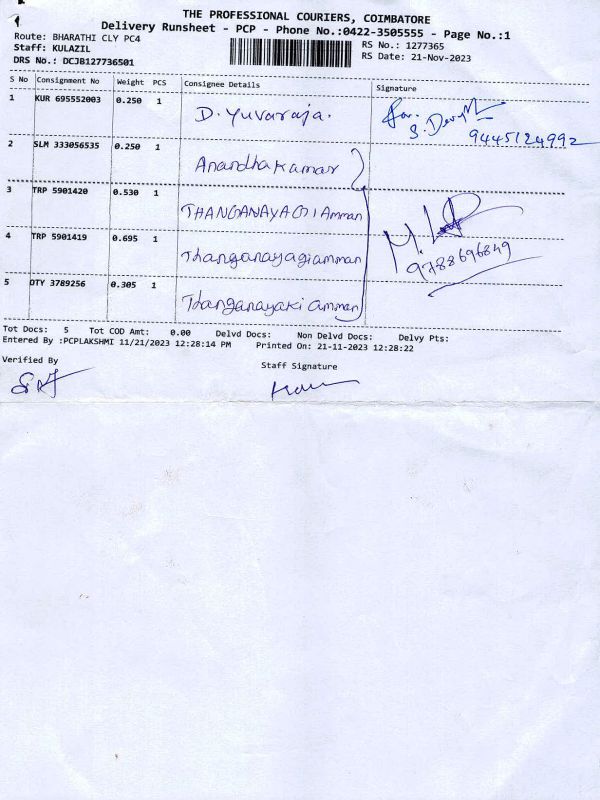 THE PROFESSIONAL COURIERS, COIMBATORE
Delivery Runsheet - PCP - Phone No.:0422-3505555 - Page No.:1
Route: BHARATHI CLY PC4
RS No.: 1277365
Staff: KULAZIL
RS Date: 21-Nov-2023
DRS No.: DCJB127736501
S No Consignment No Weight PCS Consignee Details Signature
1 KUR 695552003 0.250 1 D. Yuvaraja.
9445124992
2 SLM 333056535 0.250 1 Anandhakumar
3 TRP 5901420 0.530 1 THANGANAYAGI Amman
4 TRP 5901419 0.695 1 Thanganayagiamman
9788696849
5 OTY 3789256 0.305 1 Thanganayaki amman
Tot Docs: 5 Tot COD Amt: 0.00 Delvd Docs: Non Delvd Docs: Delvy Pts:
Entered By :PCPLAKSHMI 11/21/2023 12:28:14 PM Printed On: 21-11-2023 12:28:22
Verified By
Staff Signature